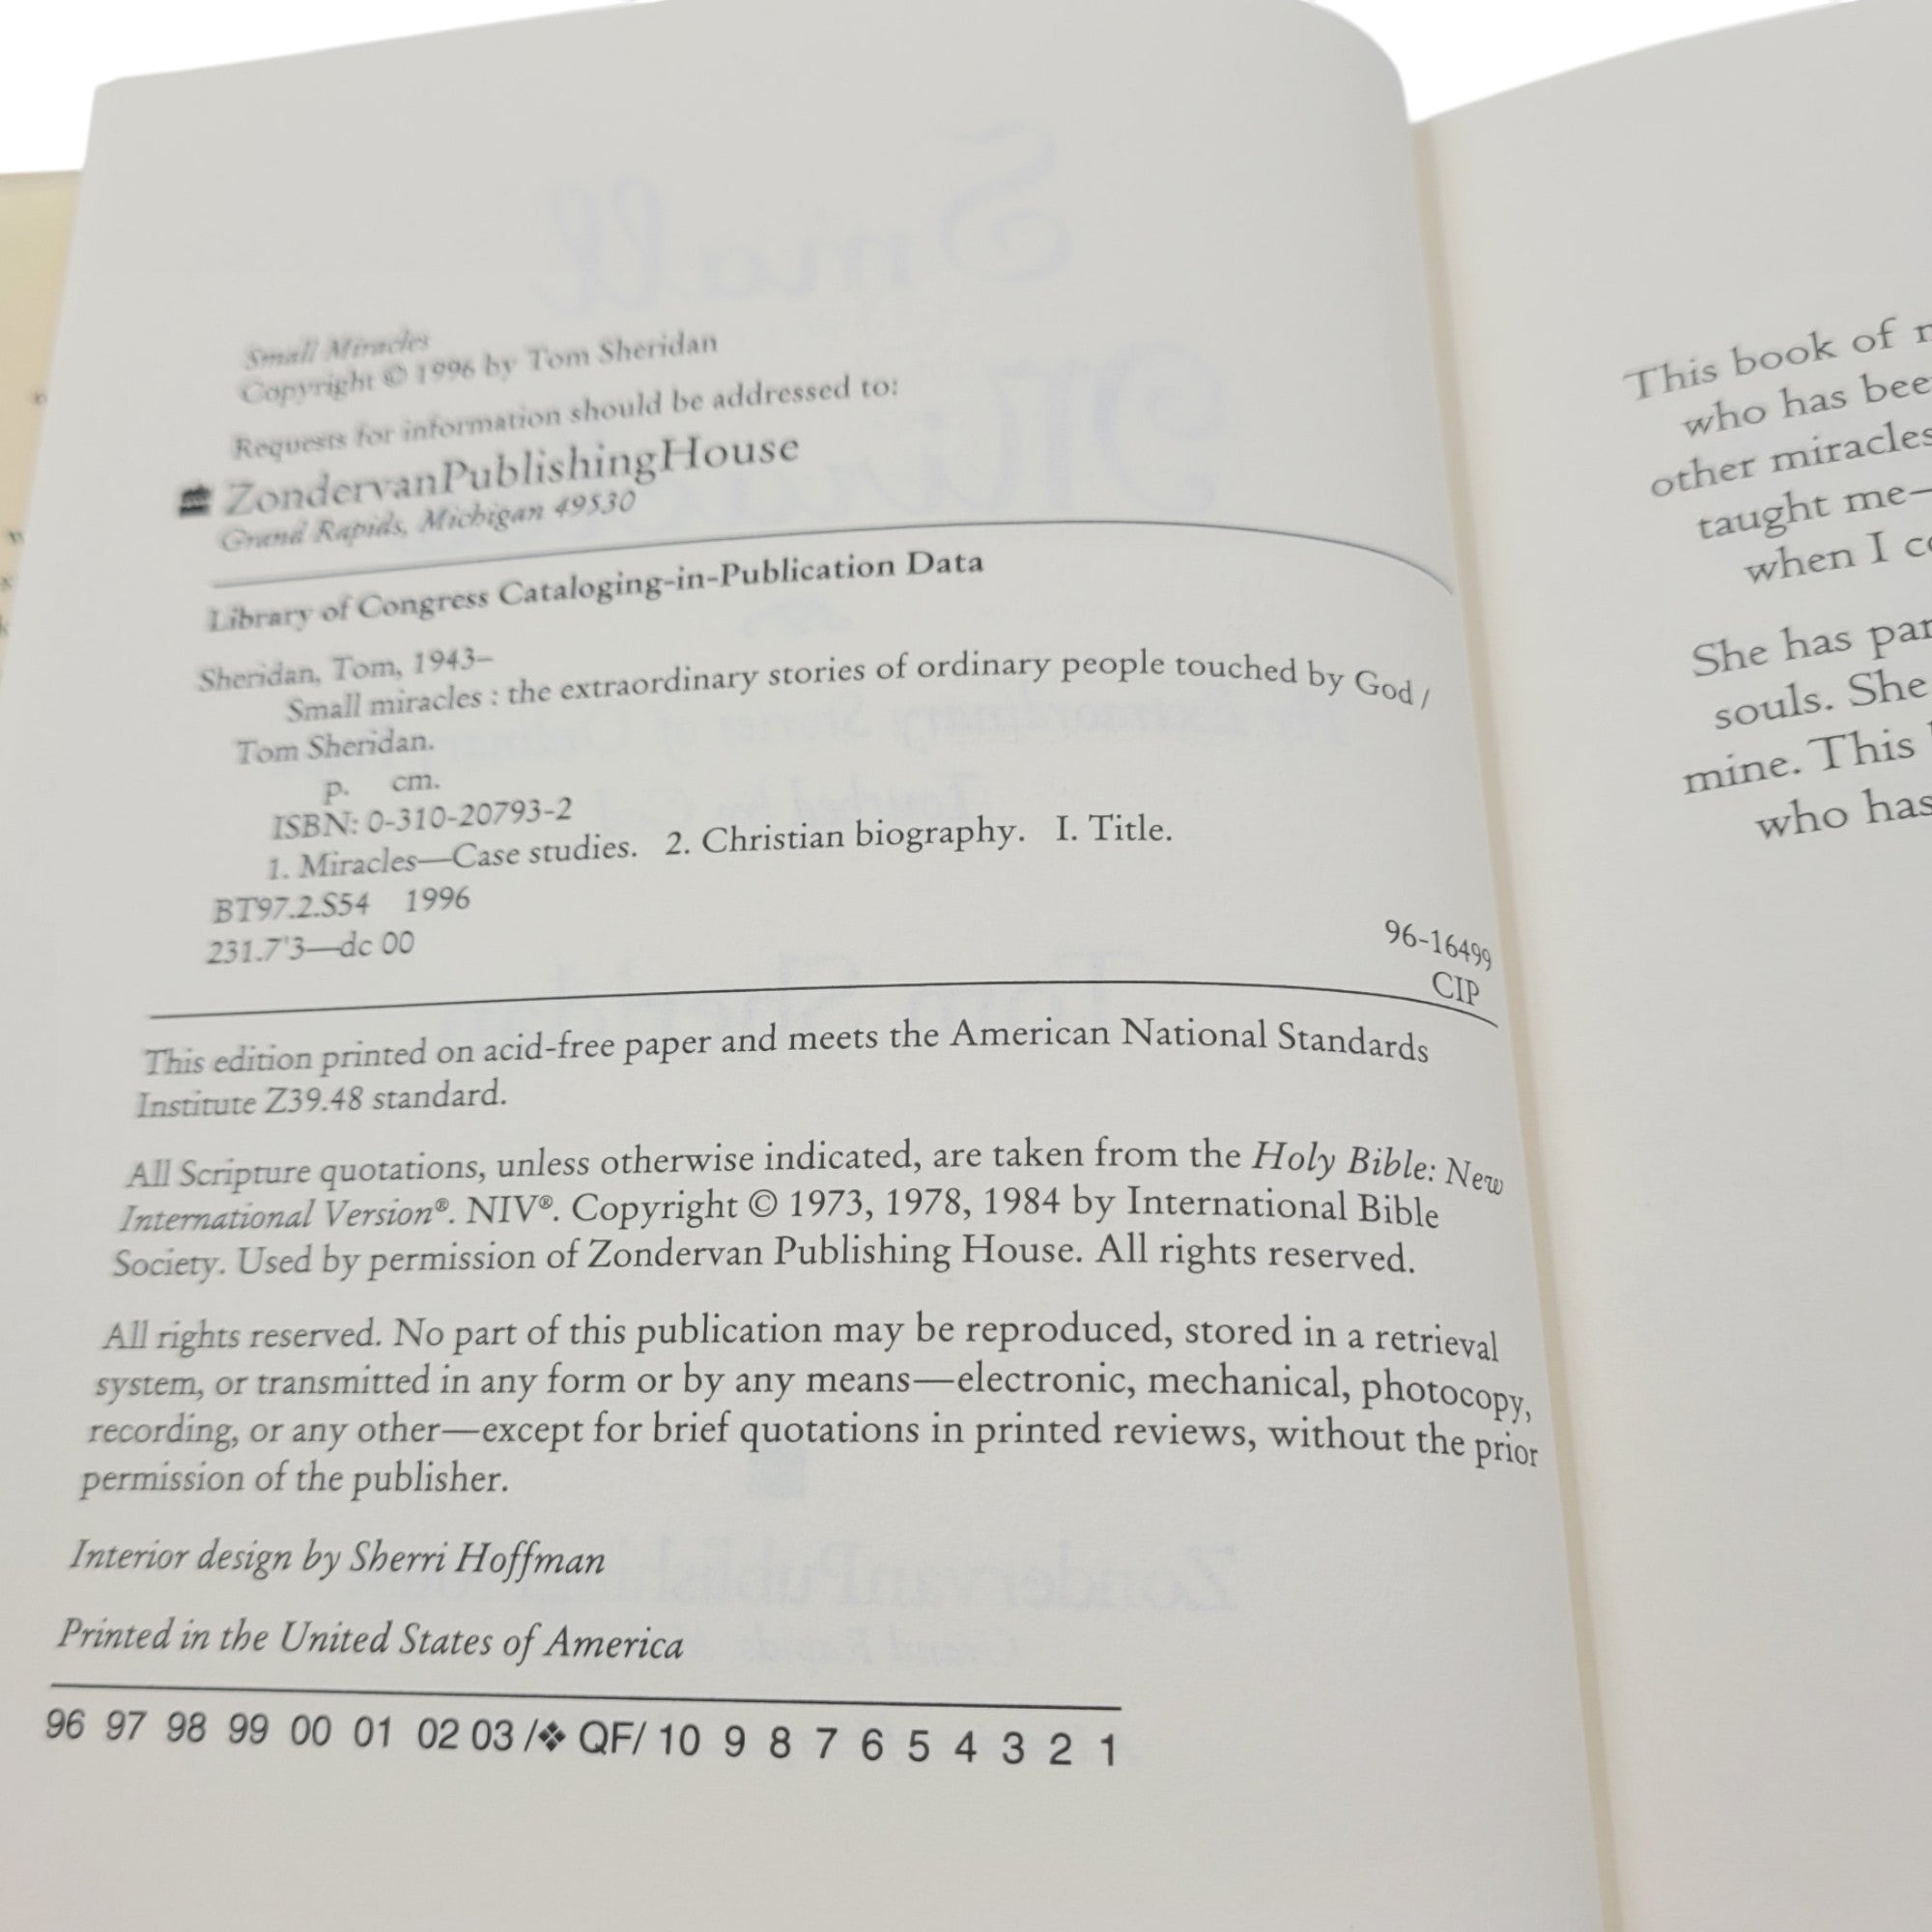 Small Miracles
Copyright © 1996 by Tom Sheridan
Requests for information should be addressed to:
ZondervanPublishingHouse
Grand Rapids, Michigan 49530
Library of Congress Cataloging-in-Publication Data
Sheridan, Tom, 1943–
Small miracles : the extraordinary stories of ordinary people touched by God /
Tom Sheridan.
p. cm.
ISBN: 0-310-20793-2
1. Miracles—Case studies. 2. Christian biography. I. Title.
BT97.2.S54 1996
231.7'3—dc 00
96-16499
CIP
This edition printed on acid-free paper and meets the American National Standards
Institute Z39.48 standard.
All Scripture quotations, unless otherwise indicated, are taken from the Holy Bible: New
International Version®. NIV®. Copyright © 1973, 1978, 1984 by International Bible
Society. Used by permission of Zondervan Publishing House. All rights reserved.
All rights reserved. No part of this publication may be reproduced, stored in a retrieval
system, or transmitted in any form or by any means—electronic, mechanical, photocopy,
recording, or any other—except for brief quotations in printed reviews, without the prior
permission of the publisher.
Interior design by Sherri Hoffman
Printed in the United States of America
96 97 98 99 00 01 02 03 /❖ QF/ 10 9 8 7 6 5 4 3 2 1
This book of
who has
other miracles
taught me—
when I
She has
souls. She
mine. This
who has